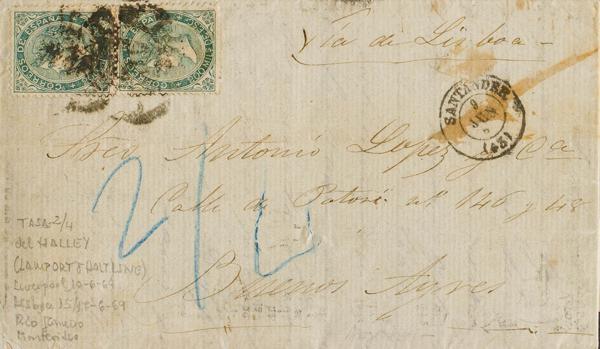 CORREOS DE ESPAÑA
CORREOS DE ESPAÑA
Via de Lisboa
SANTANDER
9
JUN
(42)
Antonio Lopez y Ca
Calle de Potosi nº 146 y 48
Buenos Ayres
2/4
TASA 2/4
del HALLEY
(LAMPORT & HOLT LINE)
Liverpool 10-6-69
Lisboa 15/6-69
Rio Janeiro
Montevideo